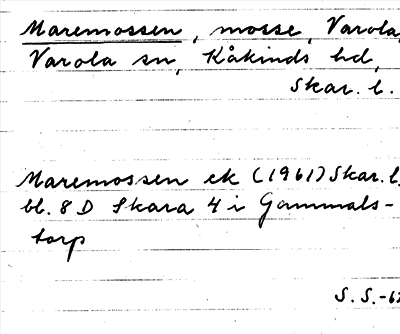 Maremossen, mosse, Varola,
Varola sn, Kåkinds hd,
Skar. l.
Maremossen ek (1961) Skar. l.
bl. 8 D Skara 4 i Gammals-
torp
S. S. -62